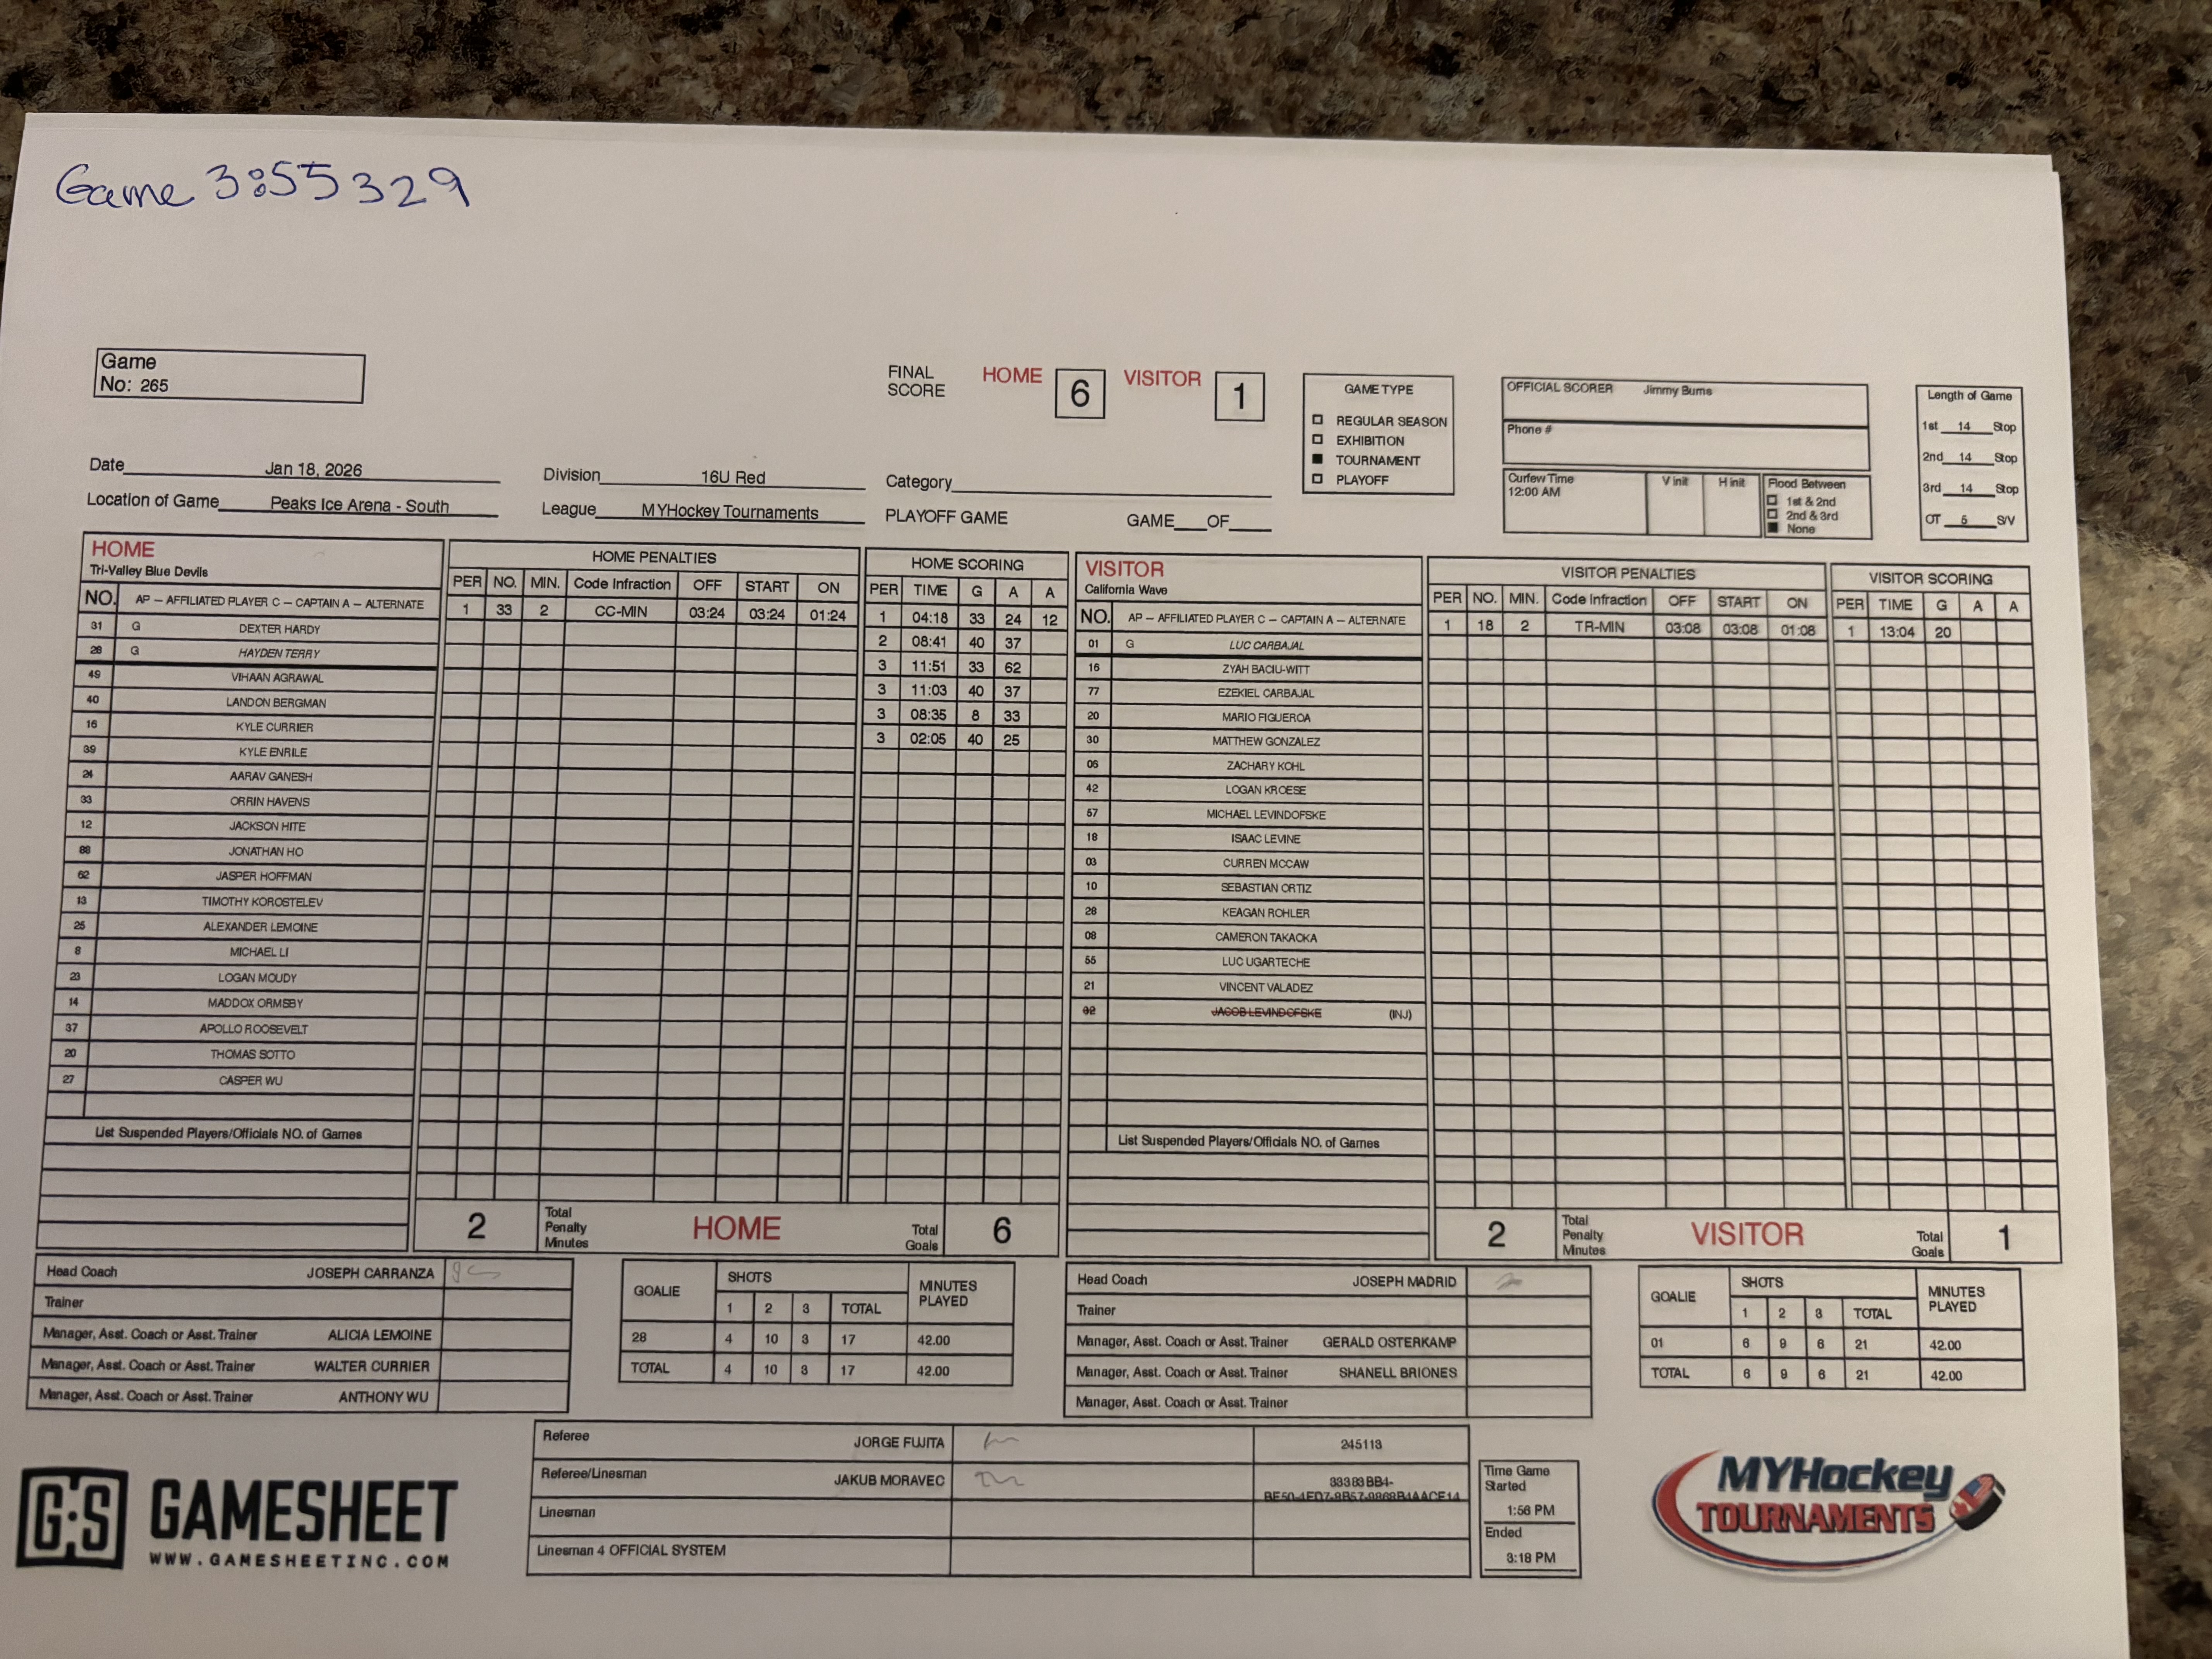 Game 3:55 329
Game
No: 265
FINAL SCORE HOME 6 VISITOR 1
GAME TYPE
REGULAR SEASON
EXHIBITION
TOURNAMENT
PLAYOFF
OFFICIAL SCORER Jimmy Burns
Phone #
Curfew Time 12:00 AM
V init
H init
Flood Between
1st & 2nd
2nd & 3rd
None
Length of Game
1st 14 Stop
2nd 14 Stop
3rd 14 Stop
OT 5 S/V
Date Jan 18, 2026
Division 16U Red
Category
Location of Game Peaks Ice Arena - South
League MYHockey Tournaments
PLAYOFF GAME GAME OF
HOME
Tri-Valley Blue Devils
NO. AP – AFFILIATED PLAYER C – CAPTAIN A – ALTERNATE
31 G DEXTER HARDY
28 G HAYDEN TERRY
49 VIHAAN AGRAWAL
40 LANDON BERGMAN
16 KYLE CURRIER
39 KYLE ENRILE
24 AARAV GANESH
33 ORRIN HAVENS
12 JACKSON HITE
88 JONATHAN HO
62 JASPER HOFFMAN
13 TIMOTHY KOROSTELEV
25 ALEXANDER LEMOINE
8 MICHAEL LI
23 LOGAN MOUDY
14 MADDOX ORMSBY
37 APOLLO ROOSEVELT
20 THOMAS SOTTO
27 CASPER WU
List Suspended Players/Officials NO. of Games
HOME PENALTIES
PER NO. MIN. Code Infraction OFF START ON
1 33 2 CC-MIN 03:24 03:24 01:24
HOME SCORING
PER TIME G A A
1 04:18 33 24 12
2 08:41 40 37
3 11:51 33 62
3 11:03 40 37
3 08:35 8 33
3 02:05 40 25
2 Total Penalty Minutes HOME Total Goals 6
VISITOR
California Wave
NO. AP – AFFILIATED PLAYER C – CAPTAIN A – ALTERNATE
01 G LUC CARBAJAL
16 ZYAH BACIU-WITT
77 EZEKIEL CARBAJAL
20 MARIO FIGUEROA
30 MATTHEW GONZALEZ
06 ZACHARY KOHL
42 LOGAN KROESE
57 MICHAEL LEVINDOFSKE
18 ISAAC LEVINE
03 CURREN MCCAW
10 SEBASTIAN ORTIZ
28 KEAGAN ROHLER
08 CAMERON TAKACKA
55 LUC UGARTECHE
21 VINCENT VALADEZ
JACOB LEVINDOFSKE (INJ)
List Suspended Players/Officials NO. of Games
VISITOR PENALTIES
PER NO. MIN. Code Infraction OFF START ON
1 18 2 TR-MIN 03:08 03:08 01:08
VISITOR SCORING
PER TIME G A A
1 13:04 20
2 Total Penalty Minutes VISITOR Total Goals 1
Head Coach JOSEPH CARRANZA
Trainer
Manager, Asst. Coach or Asst. Trainer ALICIA LEMOINE
Manager, Asst. Coach or Asst. Trainer WALTER CURRIER
Manager, Asst. Coach or Asst. Trainer ANTHONY WU
GOALIE SHOTS MINUTES PLAYED
1 2 3 TOTAL
28 4 10 3 17 42.00
TOTAL 4 10 3 17 42.00
Head Coach JOSEPH MADRID
Trainer
Manager, Asst. Coach or Asst. Trainer GERALD OSTERKAMP
Manager, Asst. Coach or Asst. Trainer SHANELL BRIONES
Manager, Asst. Coach or Asst. Trainer
GOALIE SHOTS MINUTES PLAYED
1 2 3 TOTAL
01 6 9 6 21 42.00
TOTAL 6 9 6 21 42.00
Referee JORGE FUJITA 245113
Referee/Linesman JAKUB MORAVEC 33383BB4-
Linesman
Linesman 4 OFFICIAL SYSTEM
Time Game Started
1:56 PM
Ended
3:18 PM
G·S GAMESHEET
WWW.GAMESHEETINC.COM
MYHockey
TOURNAMENTS